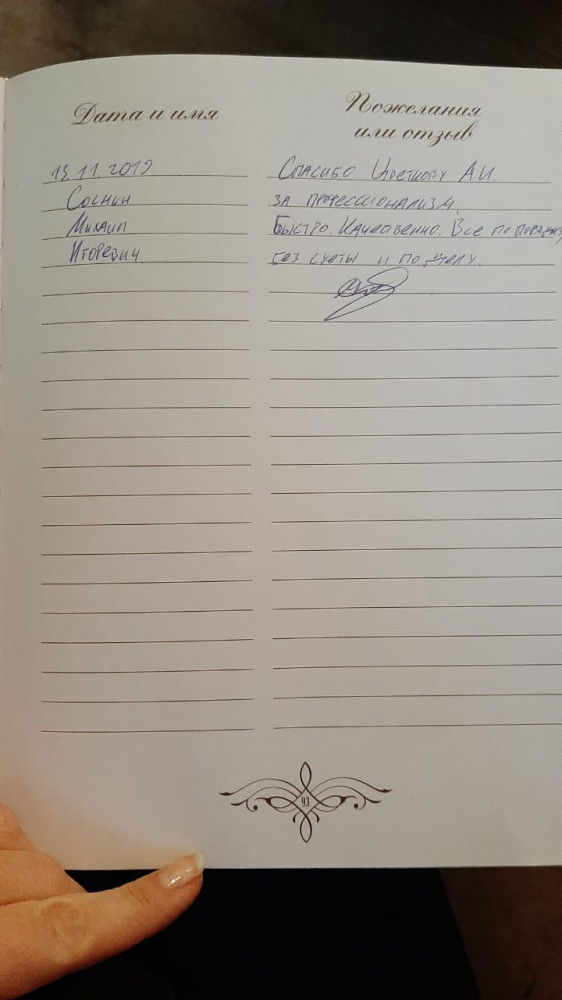 Дата и имя
Пожелания
или отзыв
13.11.2019
Соснин
Михаил
Игоревич
Спасибо Цветкову А.И.
за профессионализм.
Быстро. Качественно. Все по порядку
без суеты и по делу.
93